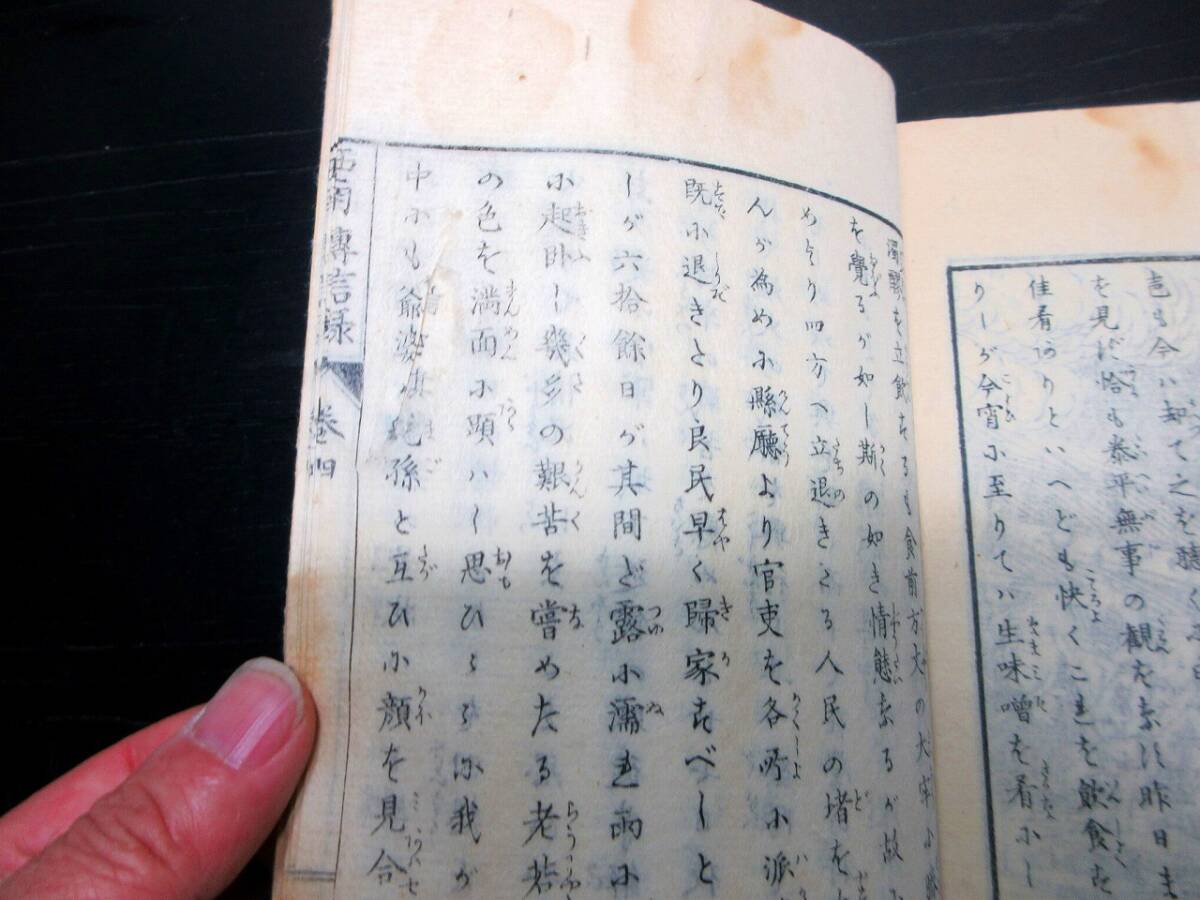 壱も今ハ知て之を聴く
を見バ恰も泰平無事の観をなせバ昨日ま
佳肴ありといへども快くこれを飲食せ
りしが今宵に至りてハ生味噌を肴にし
濁醪を立飲するも食前方丈の大牢に勝
を覺るが如し斯の如き情態なるが故に
めたり四方へ立退きたる人民の堵を
んが為めに縣廳より官吏を各所に派
既に退きたり良民早く歸家すべしと
しが六拾餘日が其間だ露に濡れ雨に
に起卧し幾多の艱苦を嘗めたる老若
の色を満面に顕ハし思ひ〻〻に我が
中にも爺婆ハ児孫と互ひに顔を見合
傳言録 巻四